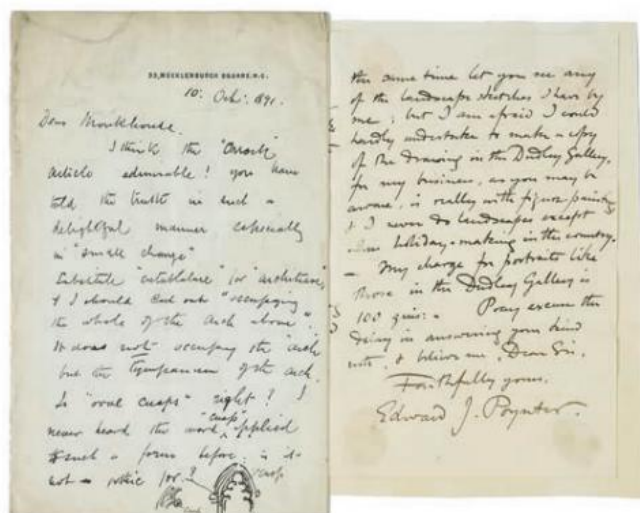 33, MECKLENBURGH SQUARE. W.C.
10: Oct: 1891.
Dear Monkhouse.
I think the "Orrock"
article admirable! you have
told the truth in such a
delightful manner especially
in "small change"
Substitute "entablature" for "architrave"
& I should cut out "occupying
the whole of the arch above".
It does not occupy the "arch"
but the Tympanum of the arch.
Is "oval cusps" right? I
never heard the word "cusp" applied
to such a form before: is it
not for?
cusp
the same time let you see any
of the landscape sketches I have by
me; but I am afraid I could
hardly undertake to make a copy
of the drawing in the Dudley Gallery,
for my business, as you may be
aware, is really with figure painting
& I never do landscapes except
when holiday-making in the country.
— My charge for portraits like
those in the Dudley Gallery is
100 guins: – Pray excuse the
delay in answering your kind
note, & believe me, Dear Sir,
Faithfully yours,
Edward J. Poynter.